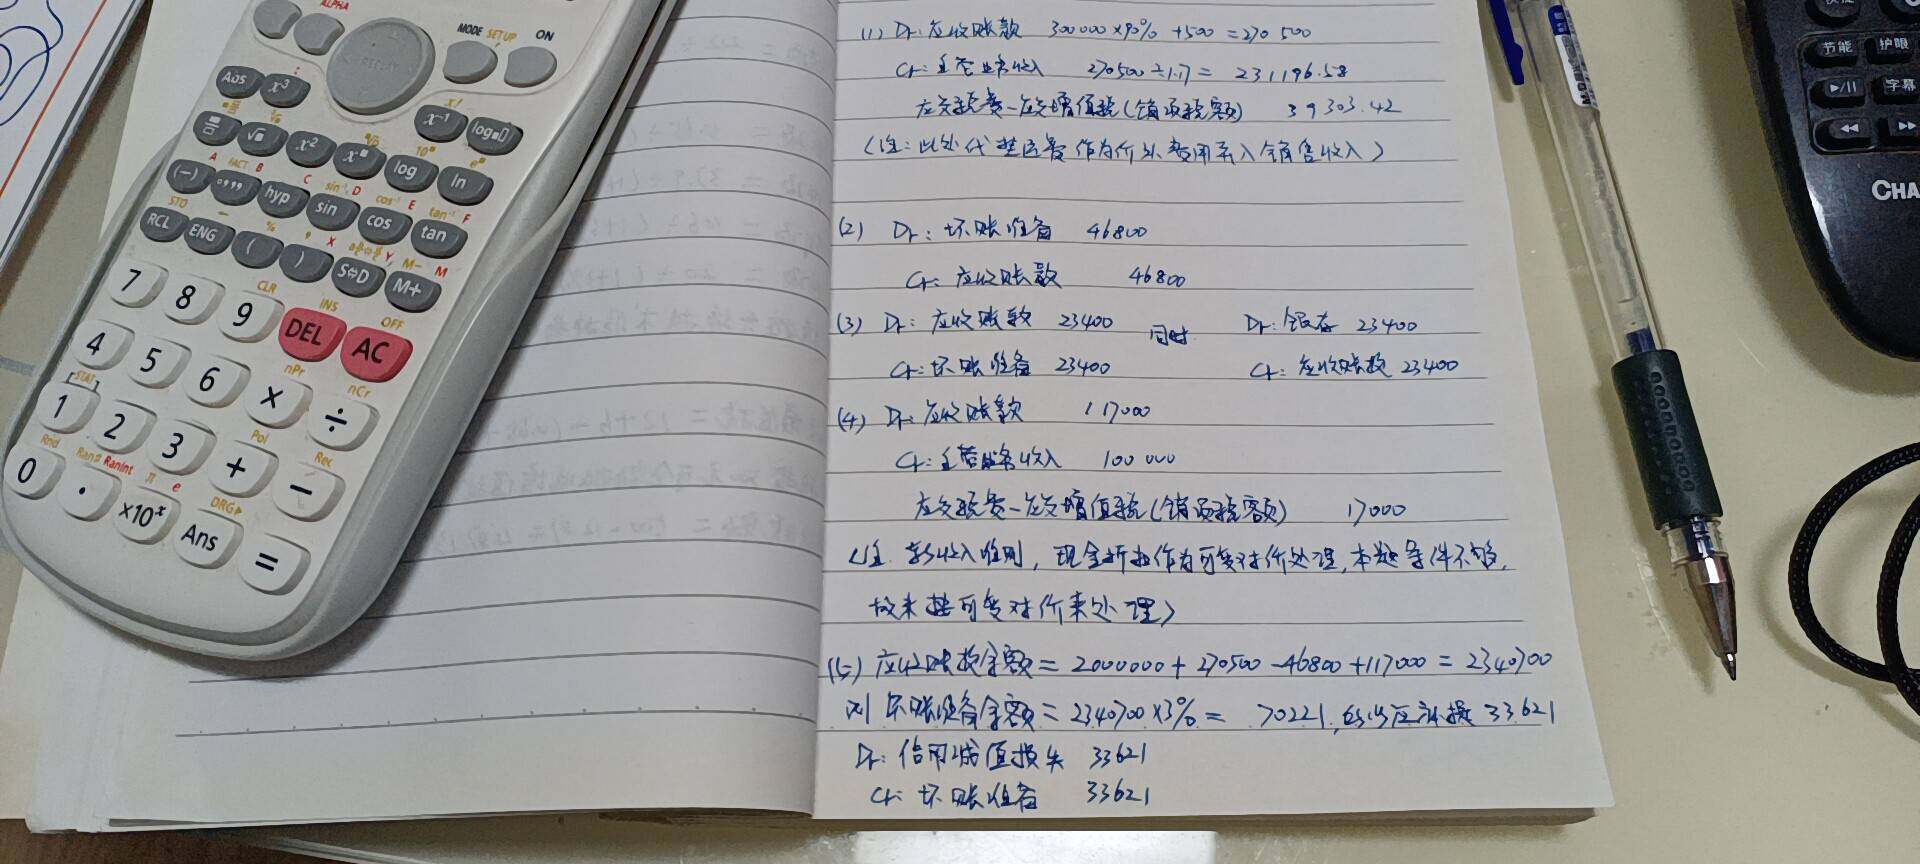 (1) Dr: 应收账款 300000×90% +500 =270 500
Cr: 主营业务收入 270500÷1.17 = 231196.58
应交税费-应交增值税(销项税额) 39303.42
(注: 此处代垫运费作为价外费用系入销售收入)
(2) Dr: 坏账准备 46800
Cr: 应收账款 46800
(3) Dr: 应收账款 23400 同时 Dr: 银存 23400
Cr: 坏账准备 23400 Cr: 应收账款 23400
(4) Dr: 应收账款 117000
Cr: 主营业务收入 100 000
应交税费-应交增值税(销项税额) 17000
(注: 新收入准则, 现金折扣作为可变对价处理, 本题条件不够,
故未按可变对价来处理)
(5) 应收账款余额 = 2000000 + 270500 -46800 +117000 = 2340700
则坏账准备余额 = 2340700 ×3% = 70221, 33621
Dr: 信用减值损失 33621
Cr: 坏账准备 33621
ALPHA
REPLAY
MODE SETUP ON
Abs x³ x⁻¹ log
x² log ln
(−) hyp sin cos tan
RCL ENG ( ) S⇔D M+
7 8 9 DEL AC
4 5 6 × ÷
1 2 3 + −
0 . ×10ˣ Ans =
节能 护眼
字幕
CHA